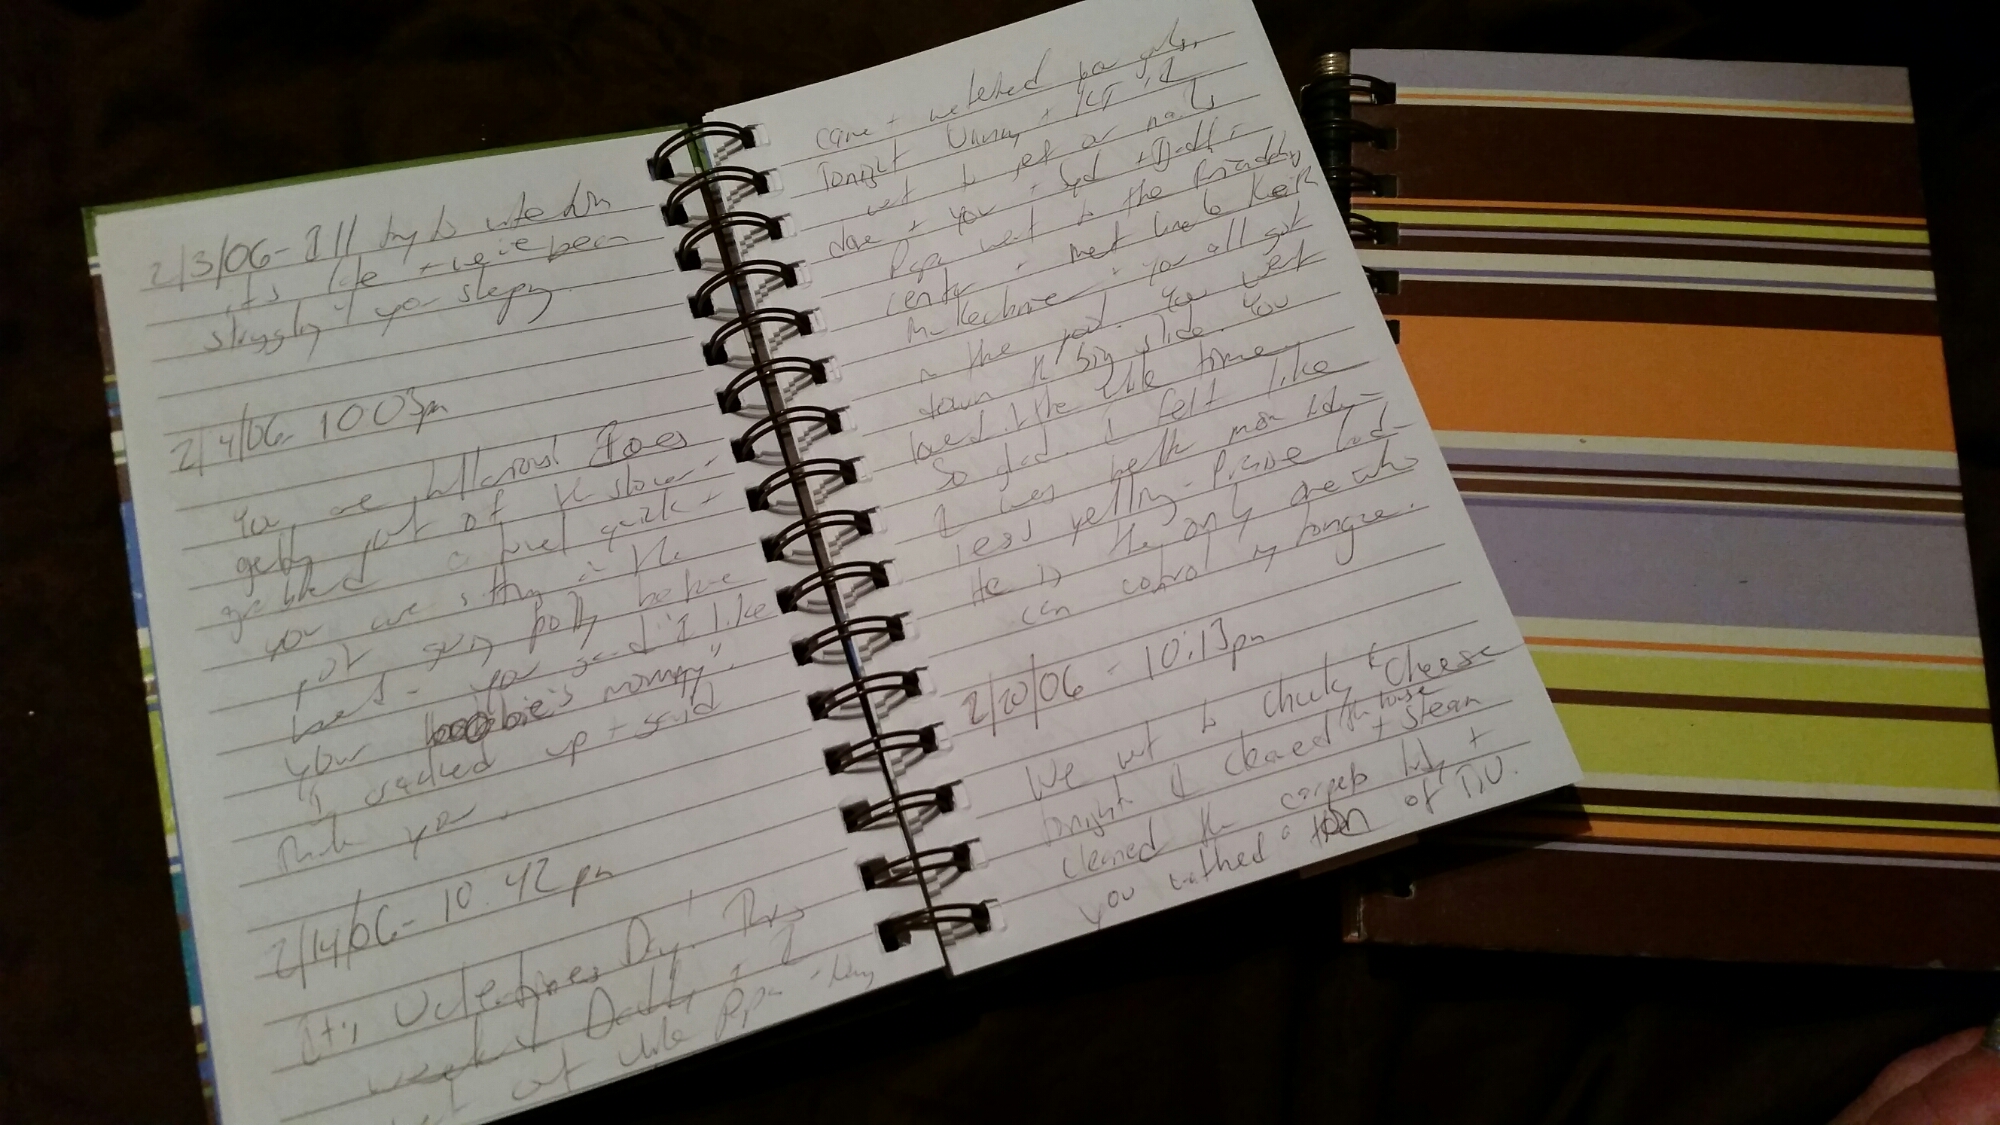 2/3/06- I'll try to write b/c
its late + we've been
struggling w/ your sleeping.
2/4/06- 10:03pm
You are hillarious!
getting out of the shower-
grabbed a towel quick +
you are sitting in the
pot going potty before
bed- you said "I like
your boobie's mommy".
I cracked up + said
Thank you.
2/14/06- 10:42pm
It's Valentines Day! This
weekend Daddy + I
went out while Papa
came + watched you girls.
Tonight + I
went to get our nails
done + you + Syd + Daddy +
Papa went to the
center + met Uncle Keith
+ you all got
in the pool. You went
down the big slide. You
loved it the whole time.
So glad. I felt like
I was better mom today-
less yelling- Praise God-
He is the only one who
can control my tongue.
2/20/06 - 10:13pm
We went to Chuck E Cheese
tonight. I cleaned the house + steam
cleaned the carpets today +
you watched a ton of T.V.